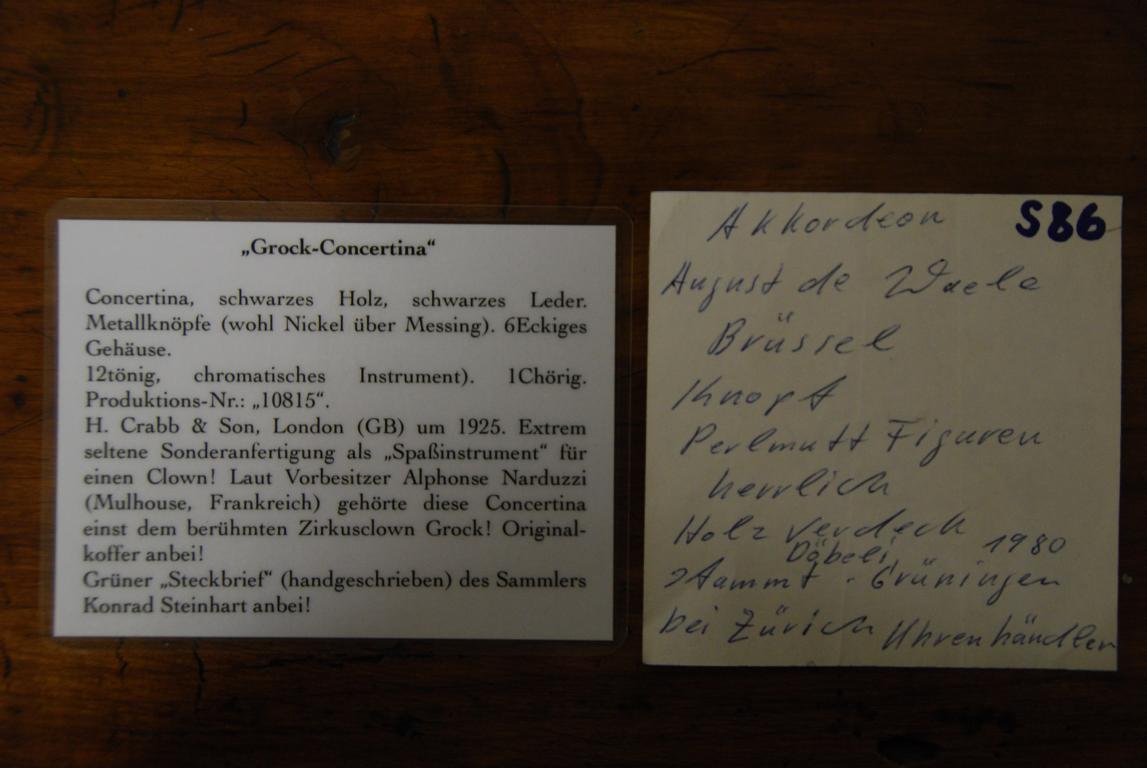 „Grock-Concertina“
Concertina, schwarzes Holz, schwarzes Leder.
Metallknöpfe (wohl Nickel über Messing). 6Eckiges
Gehäuse.
12tönig, chromatisches Instrument). 1Chörig.
Produktions-Nr.: „10815“.
H. Crabb & Son, London (GB) um 1925. Extrem
seltene Sonderanfertigung als „Spaßinstrument“ für
einen Clown! Laut Vorbesitzer Alphonse Narduzzi
(Mulhouse, Frankreich) gehörte diese Concertina
einst dem berühmten Zirkusclown Grock! Original-
koffer anbei!
Grüner „Steckbrief“ (handgeschrieben) des Sammlers
Konrad Steinhart anbei!
Akkordeon S86
August de Waele
Brüssel
Knopf
Perlmutt Figuren
herrlich
Holz verdeck
Döbeli, 1980
Stammt - Grüningen
bei Zürich Uhrenhändler